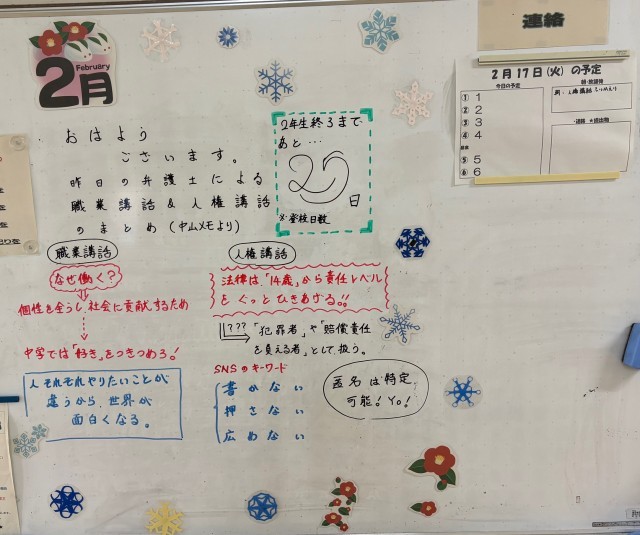 February
2月
おはよう
ございます。
昨日の弁護士による
職業講話&人権講話
のまとめ(中山メモより)
2年生終了まで
あと…
25
日
※登校日数
連絡
2月17日(火)の予定
今日の予定
① 1
② 2
③ 3
④ 4
⑤ 5
⑥ 6
職業講話
なぜ働く?
個性を全うし、社会に貢献するため
中学では「好き」をつきつめろ!
人それぞれやりたいことが
違うから、世界が
面白くなる。
人権講話
法律は、「14歳」から責任レベル
をぐっとひきあげる!!
???
「犯罪者」や「賠償責任
を負える者」として扱う。
SNSのキーワード
書かない
押さない
広めない
匿名は特定
可能!Yo!